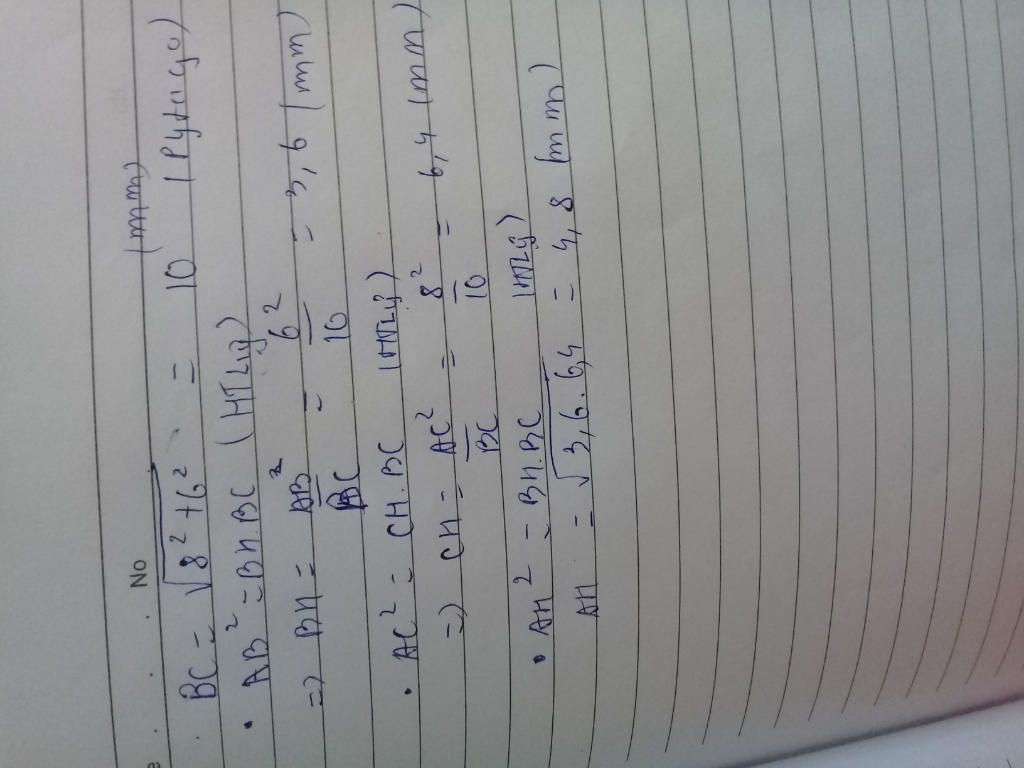 No
(mm)
BC = √8² + 6² = 10 (Pytago)
• AB² = BH.BC (HTLg)
=) BH = AB²/BC = 6²/10 = 3,6 (mm)
• AC² = CH.BC (HTLg)
=) CH = AC²/BC = 8²/10 = 6,4 (mm)
• AH² = BH.BC (HTLg)
AH = √3,6.6,4 = 4,8 (mm)